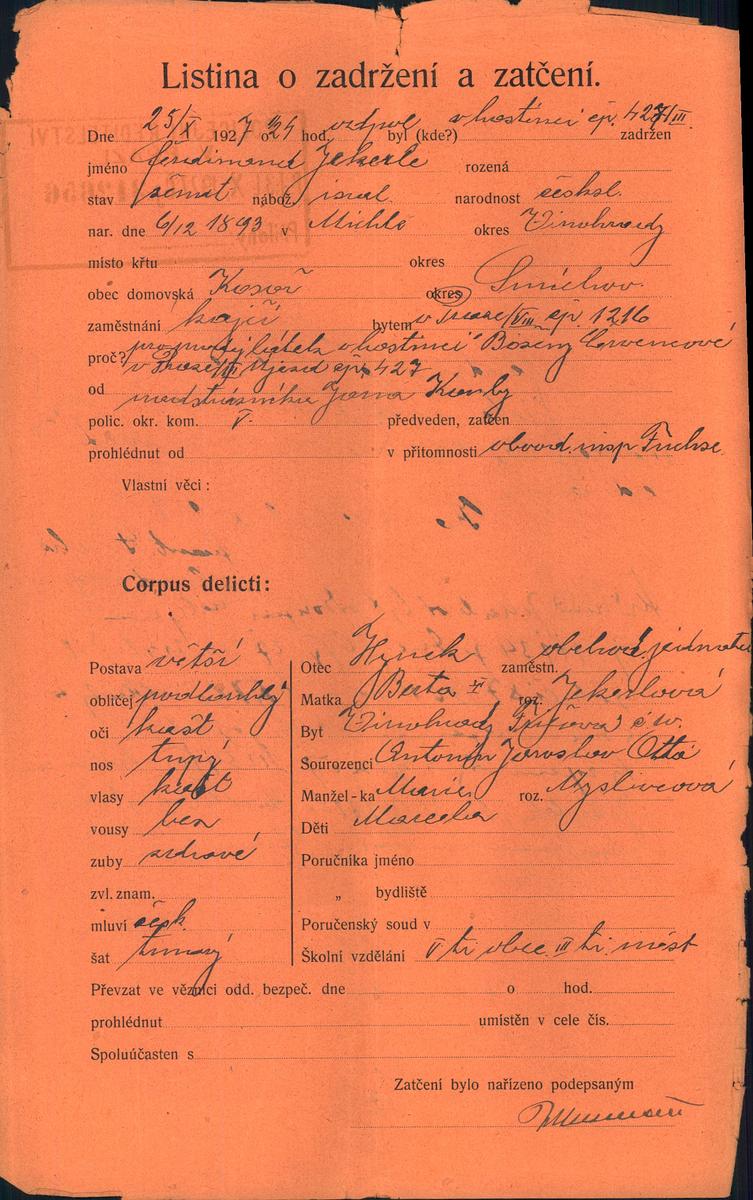 Listina o zadržení a zatčení.
Dne 25/X 1927 o 24 hod. odpol byl (kde?) v hostinci čp. 427/III. zadržen
jméno Ferdinand Jekerle rozená
stav ženat nábož. israel. narodnost českosl.
nar. dne 6/12 1893 v Michle okres Vinohrady
místo křtu okres
obec domovská Kosoř okres Smíchov
zaměstnání krejčí bytem v Praze/VIII čp. 1216
proč? pro prodej látek v hostinci Boženy Červencové
v Praze/III Újezd čp. 427
od nadstrážníka Jana Kunby
polic. okr. kom. V. předveden, zatčen
prohlédnut od v přítomnosti obvod. insp. Fuchse
Vlastní věci :
Corpus delicti:
Postava větší
obličej podlouhlý
oči kašt
nos tupý
vlasy kašt
vousy bez
zuby zdravé
zvl. znam.
mluví česk.
šat tmavý
Otec Hynek zaměstn. obchod. jednatel
Matka Berta roz. Jekerlová
Byt Vinohrady
Sourozenci Antonín Jaroslav Otto
Manžel-ka Marie roz. Myslivecová
Děti Marcela
Poručníka jméno
„ bydliště
Poručenský soud v
Školní vzdělání V tř. obec. III tř. měst
Převzat ve věznici odd. bezpeč. dne o hod.
prohlédnut umístěn v cele čís.
Spoluúčasten s
Zatčení bylo nařízeno podepsaným